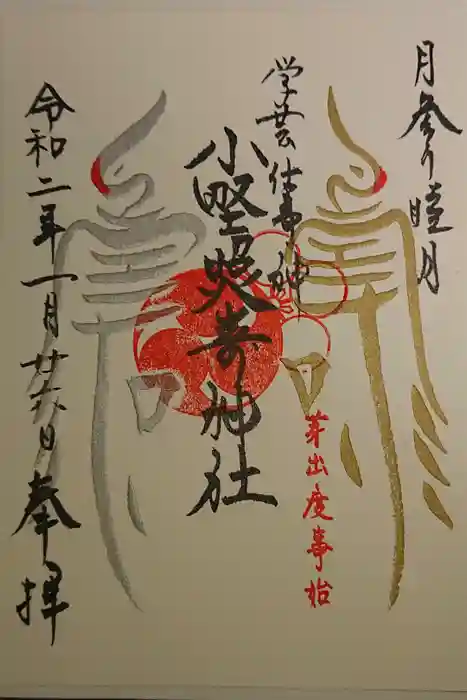 月参り睦月
学芸仕事神
小野照崎神社
芽出度事始
令和二年一月廿六日
奉拝